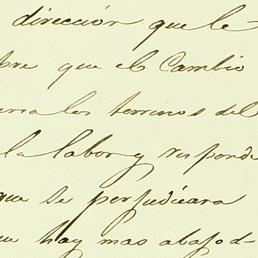 dirección que le-
bre que el Cambio
los terrenos del
la labor y responde
que se perjudicara
hay mas abajo d-